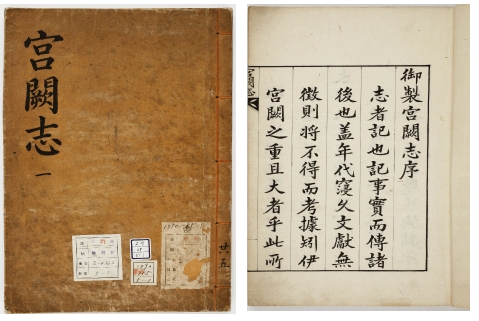 宮闕志
一
共五
御製宮闕志序
志者記也記事實而傳諸
後也盖年代寖久文獻無
徵則將不得而考據矧伊
宮闕之重且大者乎此所
宮闕志